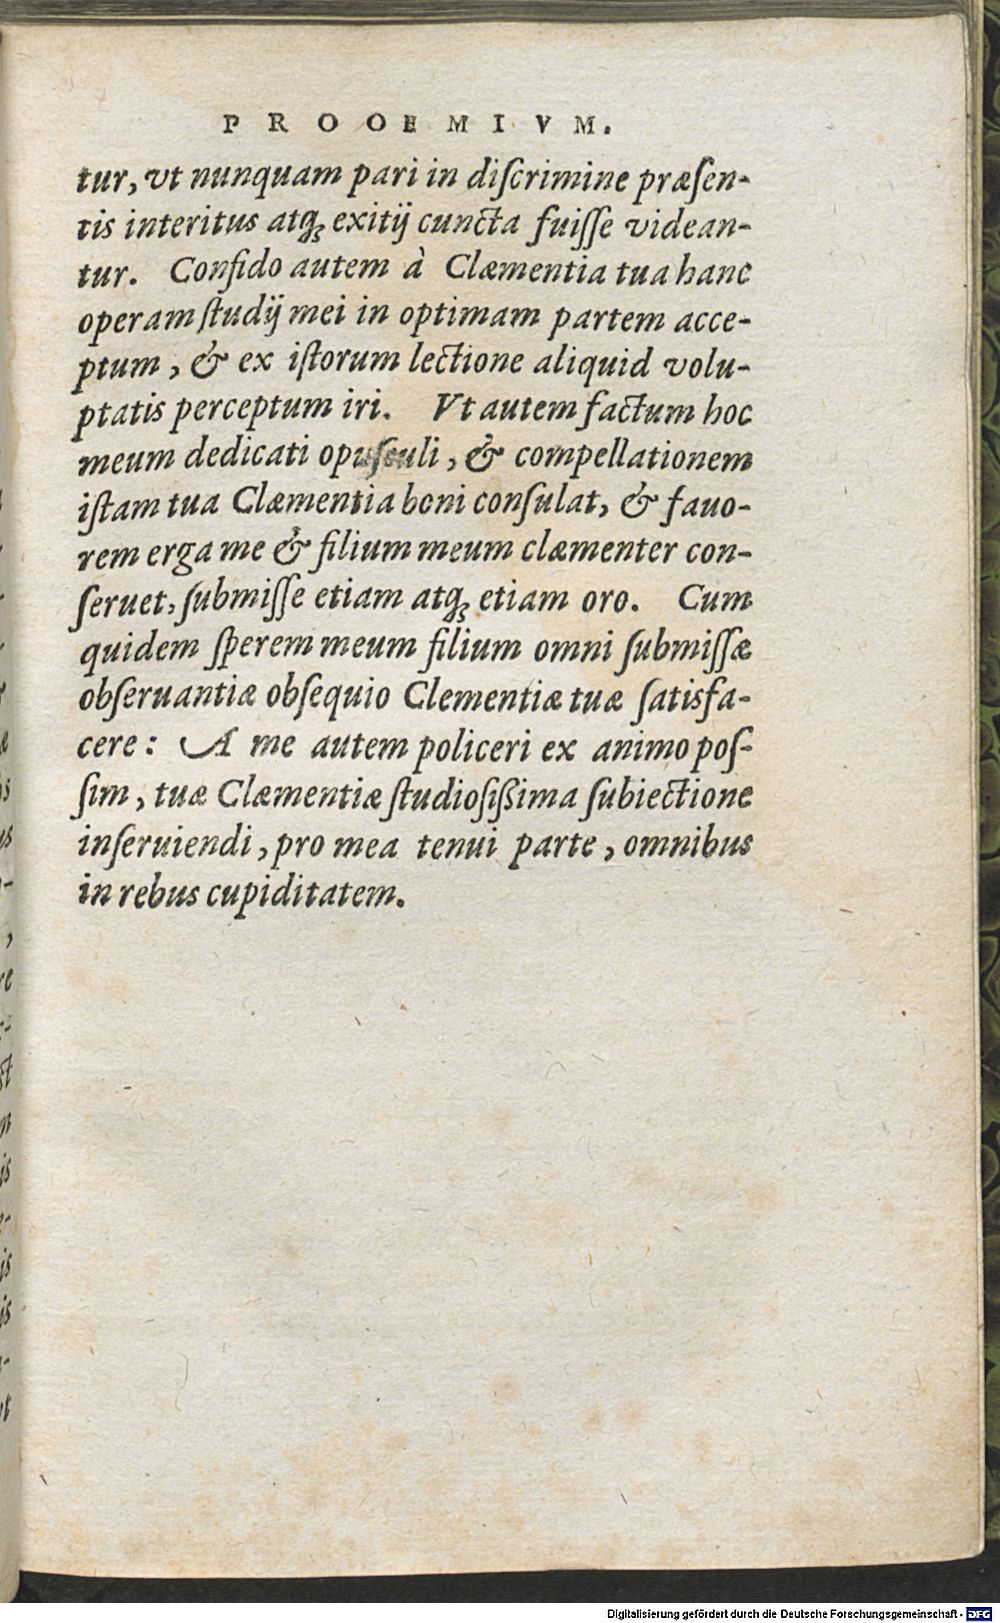 PROOEMIVM.
tur, vt nunquam pari in diſcrimine præſen-
tis interitus atq; exitij cuncta fuiſſe videan-
tur. Confido autem à Clæmentia tua hanc
operam ſtudij mei in optimam partem acce-
ptum, & ex iſtorum lectione aliquid volu-
ptatis perceptum iri. Vt autem factum hoc
meum dedicati opuſculi, & compellationem
iſtam tua Clæmentia boni conſulat, & fauo-
rem erga me & filium meum clæmenter con-
ſeruet, ſubmiſſe etiam atq; etiam oro. Cum
quidem ſperem meum filium omni ſubmiſſæ
obſeruantiæ obſequio Clementiæ tuæ ſatisfa-
cere: A me autem policeri ex animo poſ-
ſim, tuæ Clæmentiæ ſtudioſißima ſubiectione
inſeruiendi, pro mea tenui parte, omnibus
in rebus cupiditatem.
Digitalisierung gefördert durch die Deutsche Forschungsgemeinschaft - DFG